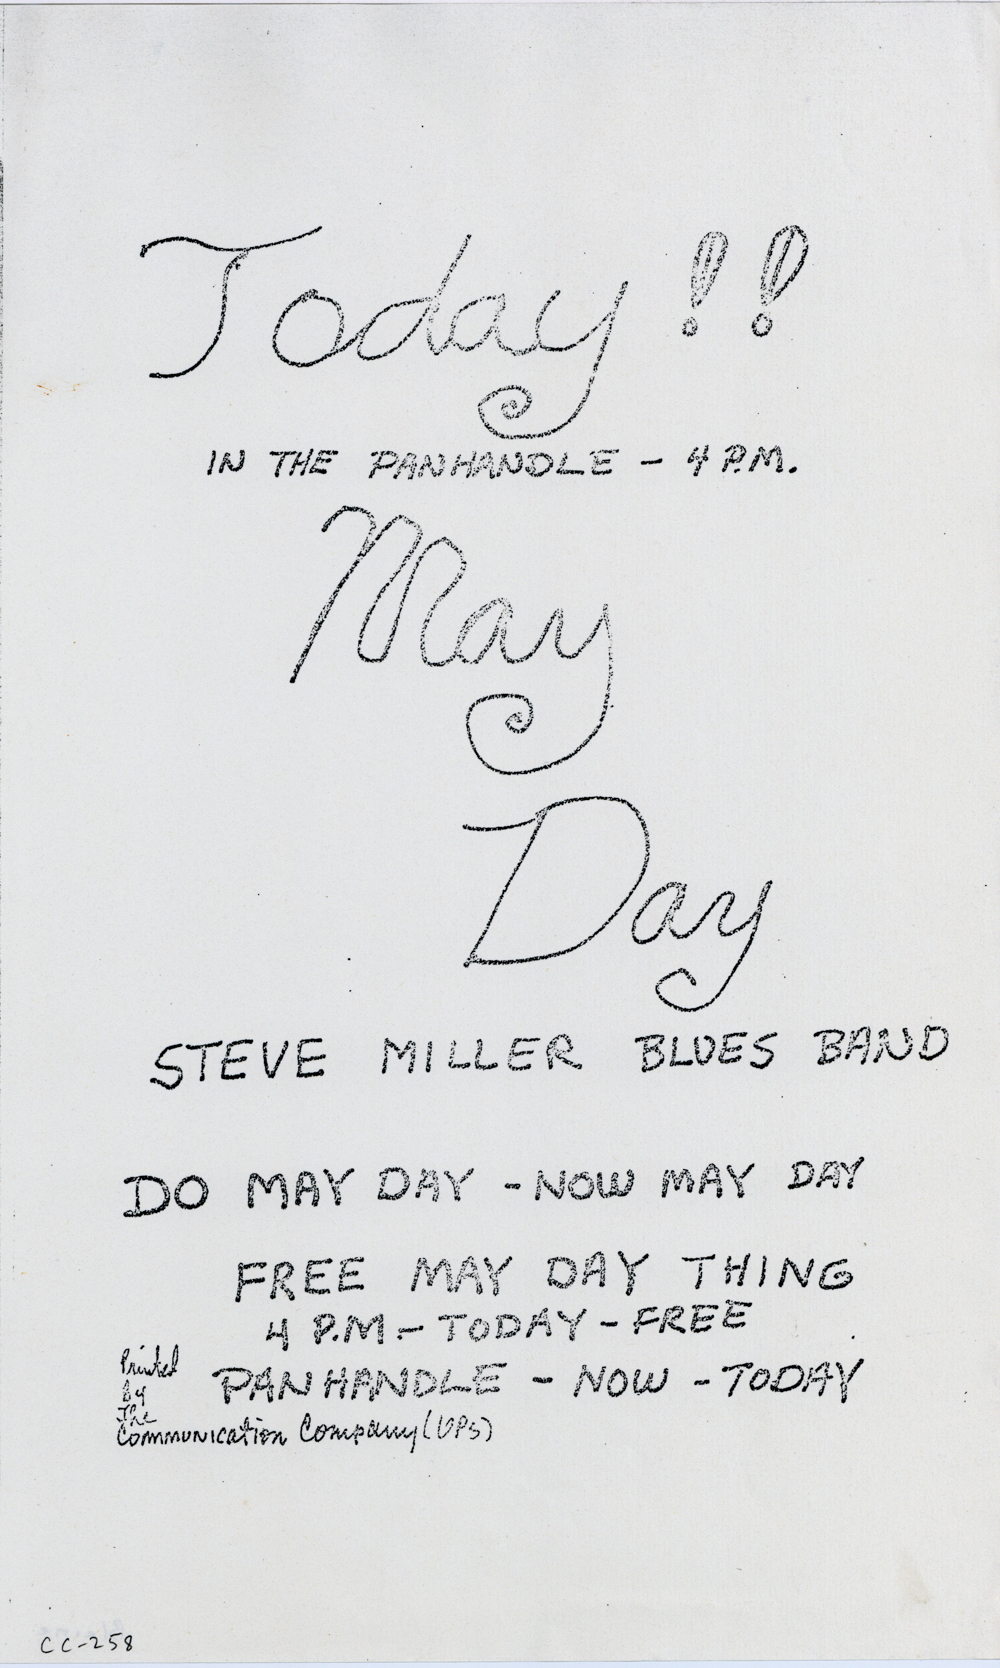 Today!!
IN THE PANHANDLE - 4 P.M.
May
Day
STEVE MILLER BLUES BAND
DO MAY DAY - NOW MAY DAY
FREE MAY DAY THING
4 P.M. - TODAY - FREE
PANHANDLE - NOW - TODAY
Printed
by
The
Communication Company (UPS)
CC-258